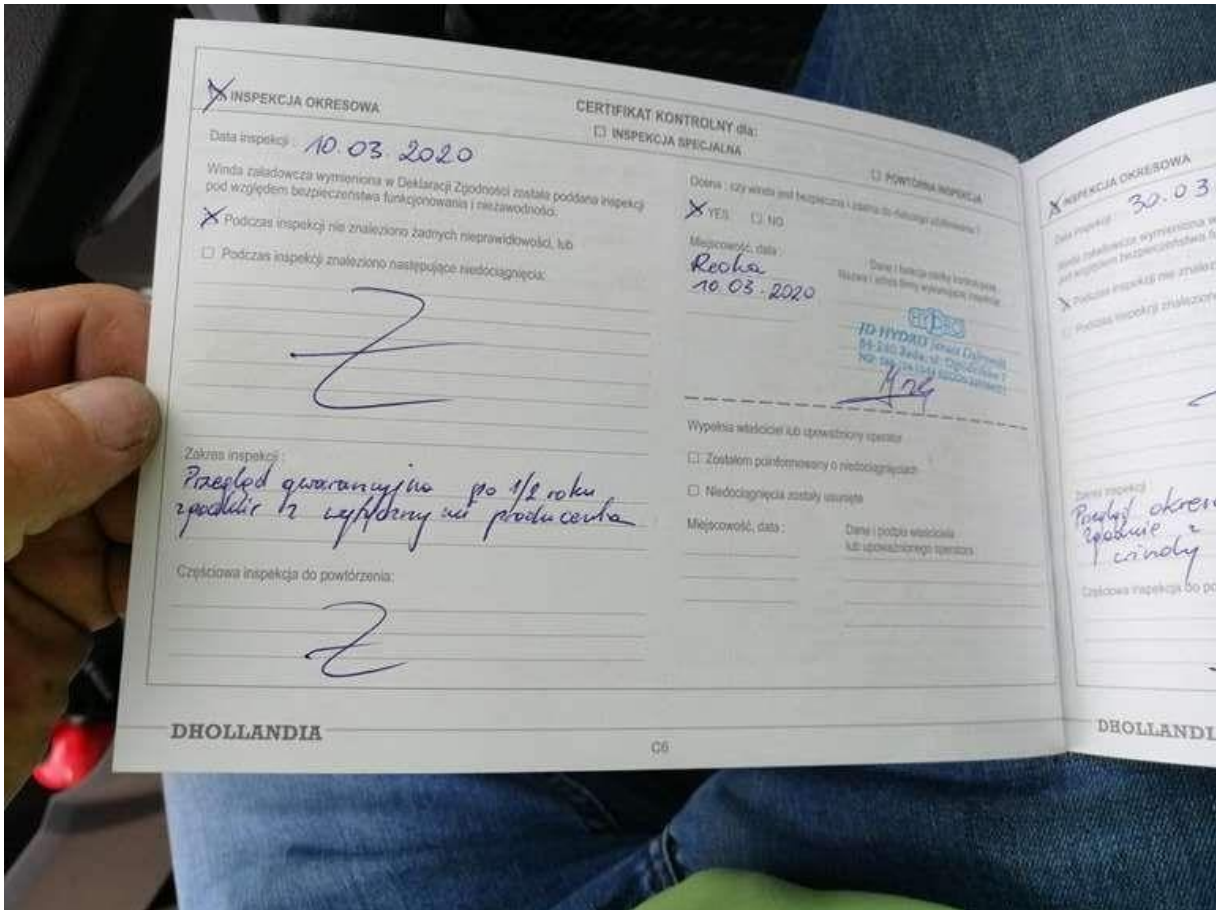 INSPEKCJA OKRESOWA
CERTIFIKAT KONTROLNY dla:
☐ INSPEKCJA SPECJALNA
☐ POWTÓRNA INSPEKCJA
Data inspekcji : 10.03.2020
Winda załadowcza wymieniona w Deklaracji Zgodności została poddana inspekcji
pod względem bezpieczeństwa funkcjonowania i niezawodności.
Podczas inspekcji nie znaleziono żadnych nieprawidłowości, lub
☐ Podczas inspekcji znaleziono następujące niedociągnięcia:
Zakres inspekcji :
Przegląd gwarancyjny po 1/2 roku
zgodnie z wytycznymi producenta
Częściowa inspekcja do powtórzenia:
DHOLLANDIA
C6
czy winda jest bezpieczna i zdatna do dalszego użytkowania ?
YES ☐ NO
Miejscowość, data :
10.03.2020
HYDRO
JD HYDRO
Wypełnia właściciel lub upoważniony operator
☐ Zostałem poinformowany o niedociągnięciach
☐ Niedociągnięcia zostały usunięte
Miejscowość, data :
Dane i podpis właściciela
lub upoważnionego operatora
INSPEKCJA OKRESOWA
Data inspekcji : 30.03
Winda załadowcza wymieniona
Podczas inspekcji nie
☐ Podczas inspekcji
Zakres inspekcji :
Przegląd
zgodnie z
windy
Częściowa inspekcja do